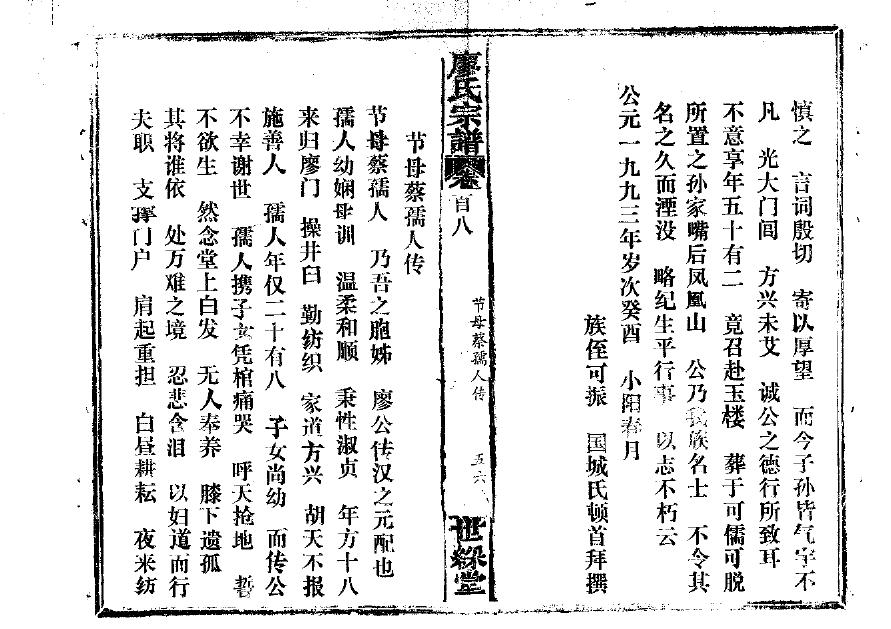 慎之　言词殷切　寄以厚望　而今子孙皆气宇不
凡　光大门闾　方兴未艾　诚公之德行所致耳
不意享年五十有二　竟召赴玉楼　葬于可儒可脱
所置之孙家嘴后凤凰山　公乃我族名士　不令其
名之久而湮没　略纪生平行事　以志不朽云
公元一九九三年岁次癸酉　小阳春月
族侄可振　国城氏顿首拜撰
廖氏宗譜　卷首八　节母蔡孺人传　五六　世綵堂
节母蔡孺人传
节母蔡孺人　乃吾之胞姊　廖公传汉之元配也
孺人幼娴母训　温柔和顺　秉性淑贞　年方十八
来归廖门　操井臼　勤纺织　家道方兴　胡天不报
施善人　孺人年仅二十有八　子女尚幼　而传公
不幸谢世　孺人携子女凭棺痛哭　呼天抢地　誓
不欲生　然念堂上白发　无人奉养　膝下遗孤
其将谁依　处万难之境　忍悲含泪　以妇道而行
夫职　支撑门户　肩起重担　白昼耕耘　夜来纺